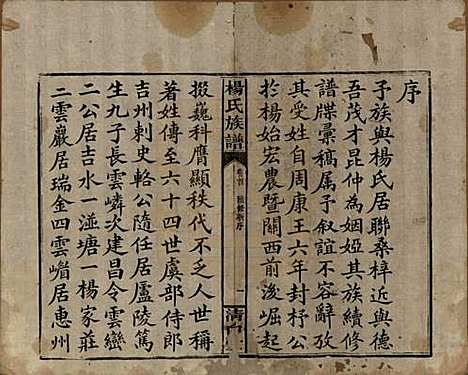 序
予族與楊氏居聯桑梓近與德
吾茂才昆仲為姻婭其族續修
譜牒彙稿属予叙誼不容辭攷
其受姓自周康王六年封杼公
於楊始宏農暨關西前後崛起
楊氏族譜
卷首
一
清白
掇巍科膺顯秩代不乏人世稱
著姓傳至六十四世虞部侍郎
吉州刺史輅公隨任居廬陵篤
生九子長雲嶙次建昌令雲巒
二公居吉水一湴塘一楊家莊
二雲巖居瑞金四雲嶍居惠州